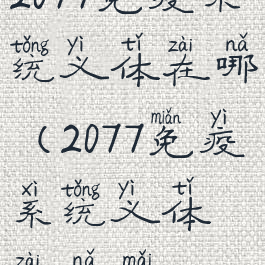 2077免疫系
tǒng yì tǐ zài nǎ
统义体在哪
miǎn yì
(2077免疫
xì tǒng yì tǐ
系统义体
zài nǎ mǎi